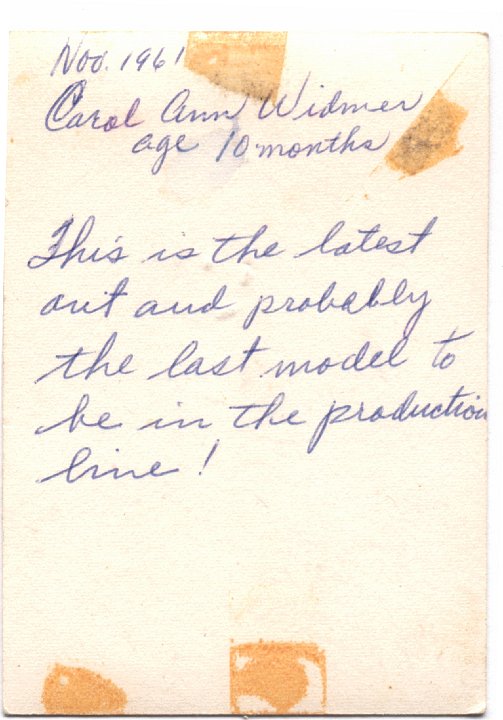 Nov. 1961
Carol Ann Widmer
age 10 months
This is the latest
out and probably
the last model to
be in the production
line!